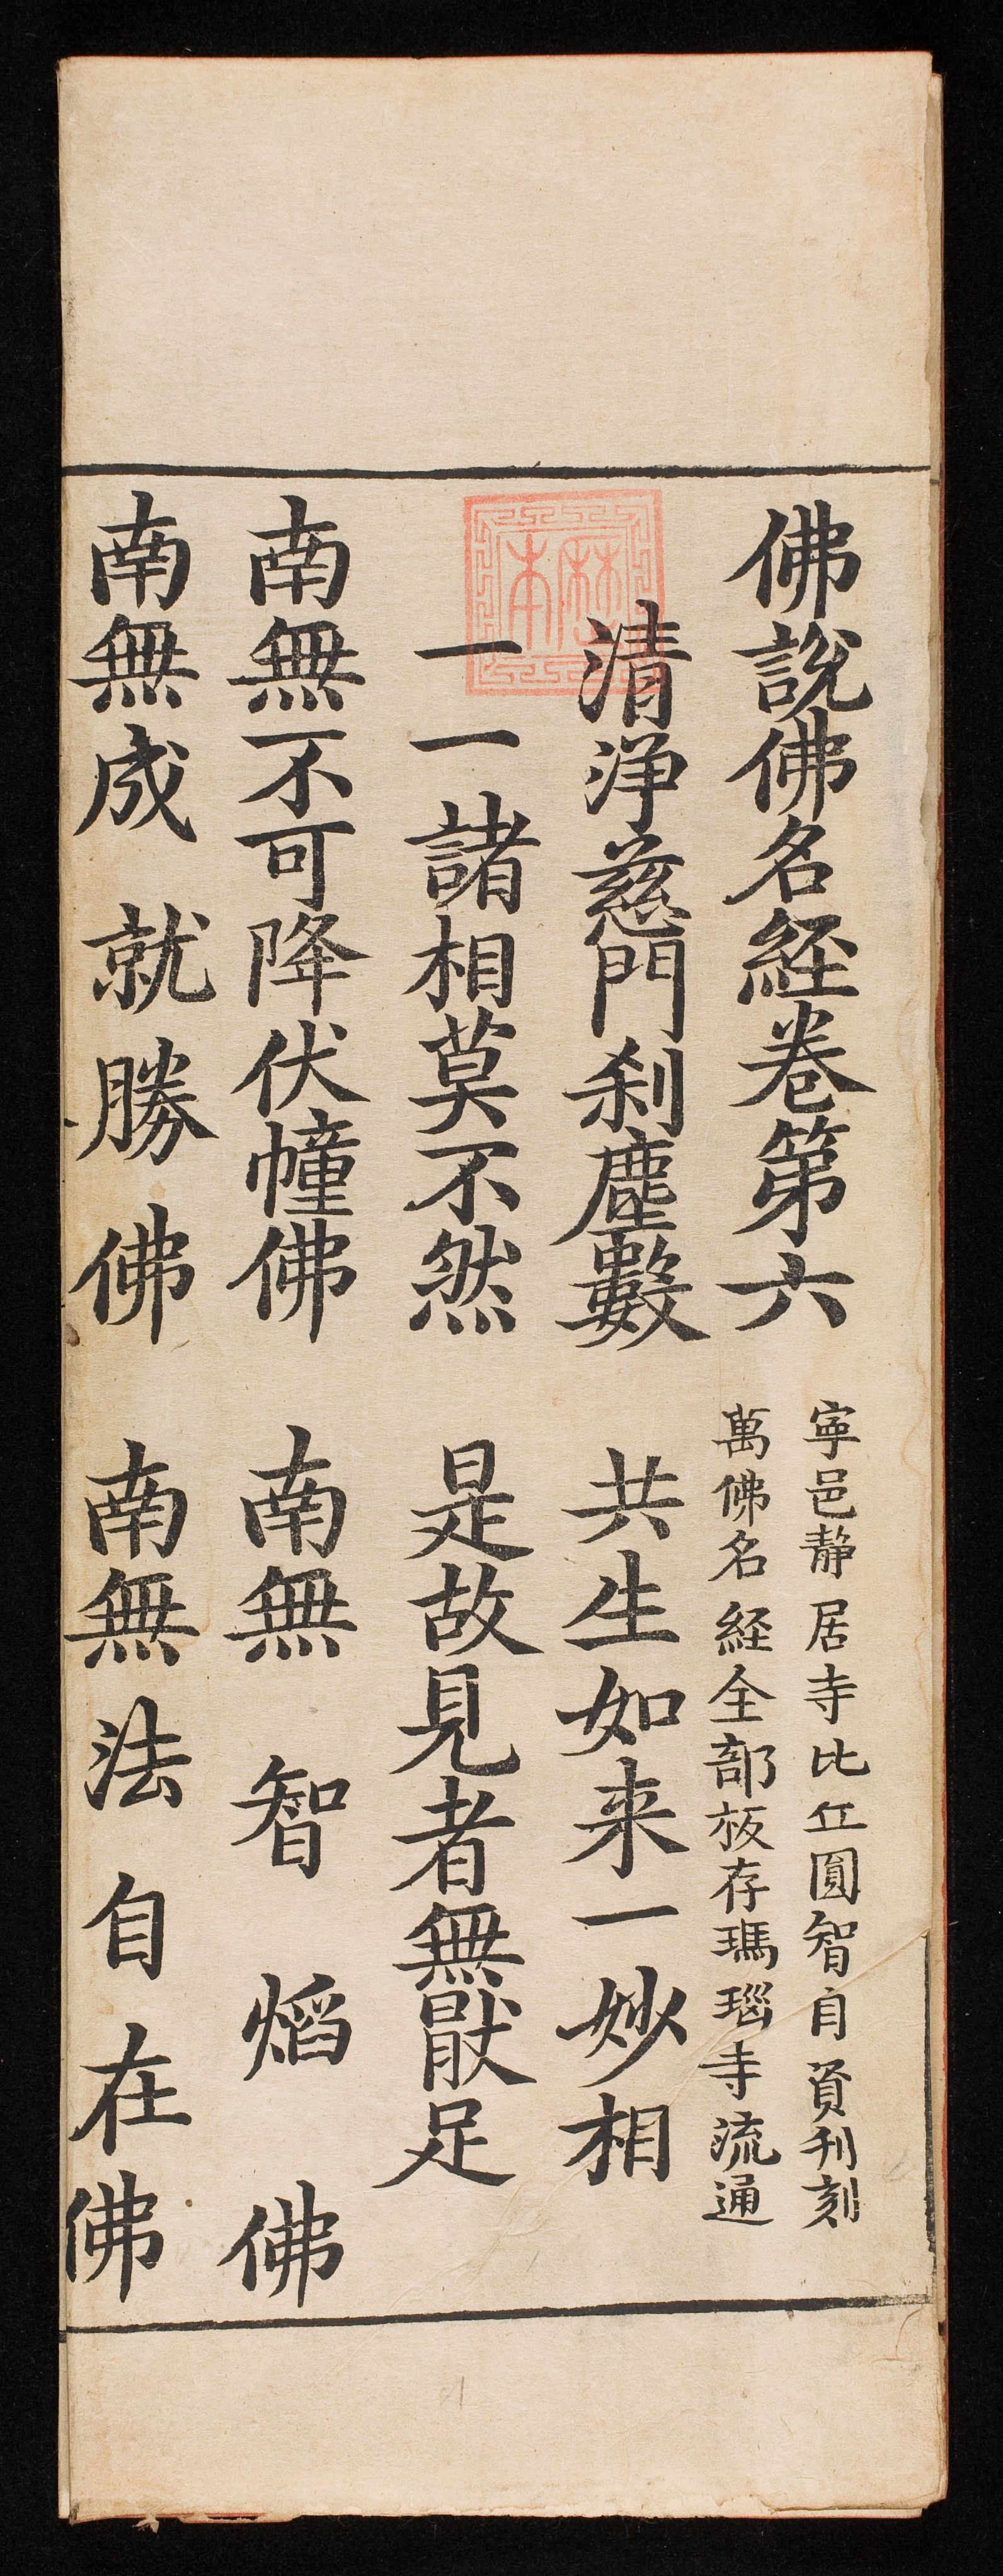 佛說佛名經卷第六
寧邑靜居寺比丘圓智自資刊刻
萬佛名經全部板存瑪瑙寺流通
清淨慈門剎塵數 共生如来一妙相
一一諸相莫不然 是故見者無猒足
南無不可降伏幢佛 南無智焰佛
南無成就勝佛 南無法自在佛